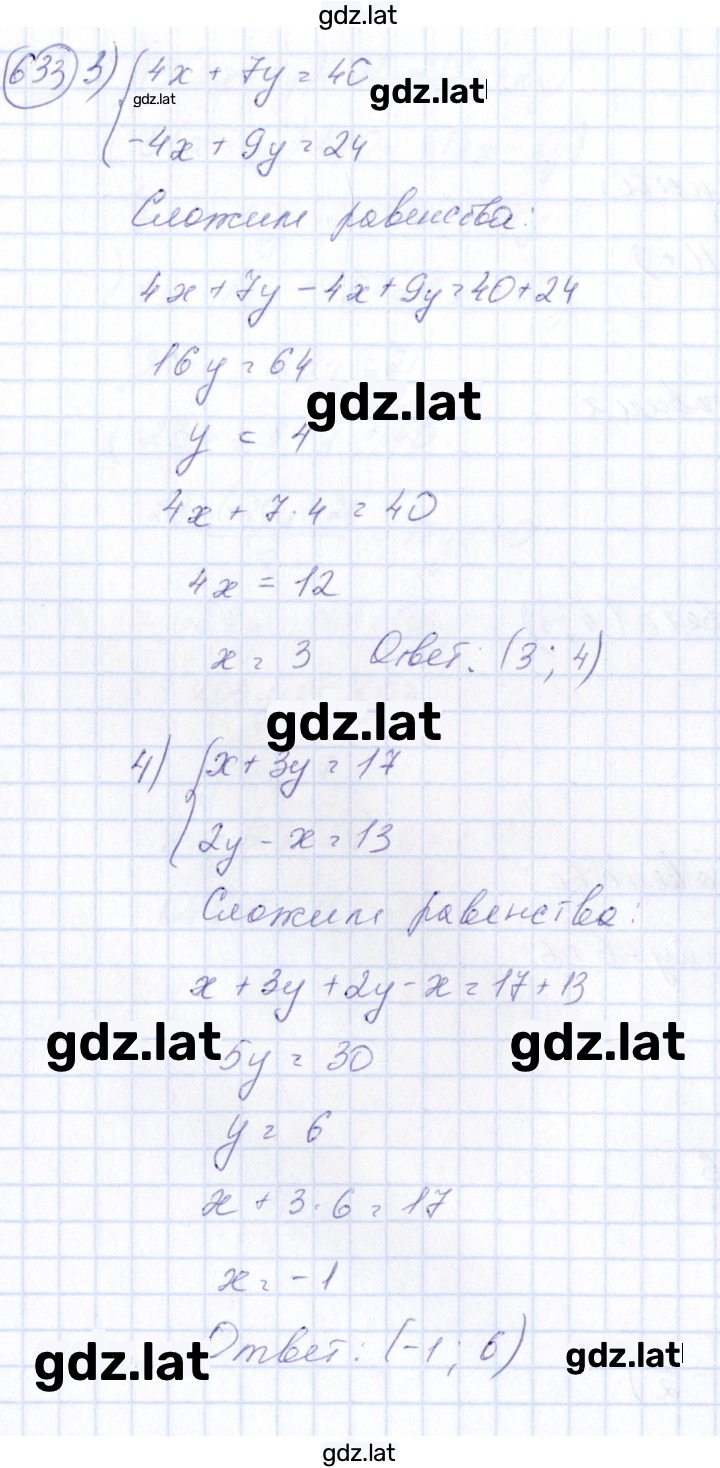 gdz.lat
633 3) { 4x + 7y = 40
gdz.lat
gdz.lat
-4x + 9y = 24
Сложим равенства:
4x + 7y - 4x + 9y = 40 + 24
16y = 64
gdz.lat
y = 4
4x + 7 · 4 = 40
4x = 12
x = 3 Ответ: (3; 4)
gdz.lat
4) { x + 3y = 17
2y - x = 13
Сложим равенства:
x + 3y + 2y - x = 17 + 13
gdz.lat gdz.lat
5y = 30
y = 6
x + 3 · 6 = 17
x = -1
Ответ: (-1; 6)
gdz.lat gdz.lat
gdz.lat